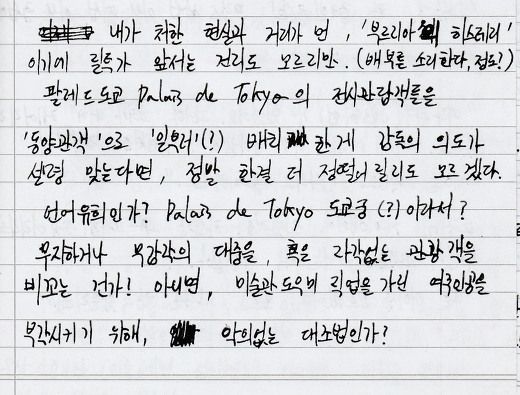 내가 처한 현실과 거리가 먼, '부르주아 히스테리'
이기에 릴특가 앞서는 건지도 모르지만. (배부른 소리한다, 정도?)
팔레드도쿄 Palais de Tokyo의 전시관람객들을
'동양관객'으로 '일부러'(?) 배치한게 감독의 의도가
설령 맞는다면, 정말 한결 더 정떨어질지도 모르겠다.
언어유희인가? Palais de Tokyo 도쿄궁(?)이라서?
무지하거나 무감각의 대중을, 혹은 자각없는 관광객을
비꼬는 건가? 아니면, 미술관 도우미 직업을 가진 여주인공을
부각시키기 위해, 악의없는 대조법인가?